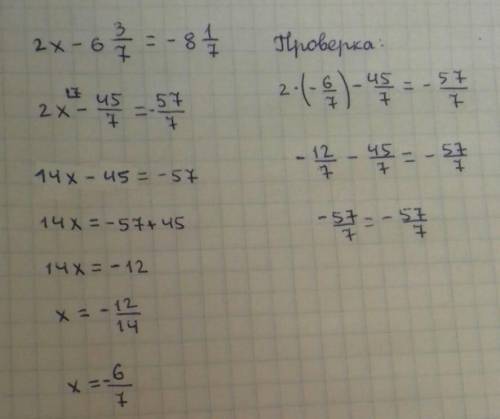 2x - 6 3/7 = - 8 1/7
2x - 45/7 = - 57/7
14x - 45 = - 57
14x = - 57 + 45
14x = - 12
x = - 12/14
x = - 6/7
Проверка:
2 · (- 6/7) - 45/7 = - 57/7
- 12/7 - 45/7 = - 57/7
- 57/7 = - 57/7